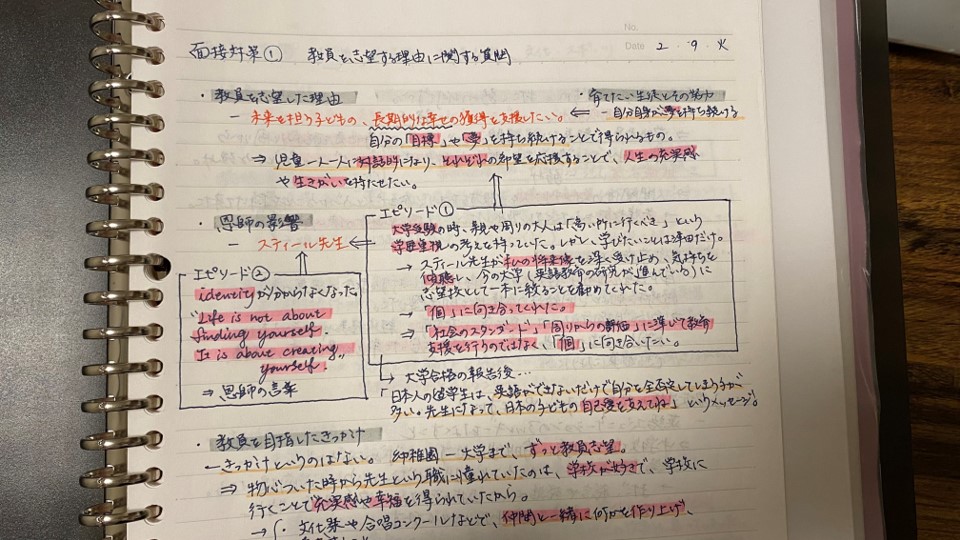 No.
Date 2・9・火
面接対策① 教員を志望する理由に関する質問
・教員を志望した理由
- 未来を担う子どもの、長期的な幸せの獲得を支援したい。
・育てたい生徒とその努力
- 自分自身が夢を持ち続ける
自分の「目標」や「夢」を持ち続けることで得られるもの。
⇒ 児童一人一人に対話的になり、それぞれの希望を応援することで、人生の充実感
や生きがいを持たせたい。
・恩師の影響
- スティール先生
エピソード①
大学受験の時、親や周りの大人は「高い所に行くべき」という
学歴重視の考えを持っていた。しかし、学びたいことは津田だけ。
→ スティール先生が私の将来像を深く受け止め、気持ちを
傾聴し、今の大学(英語教育の研究が進んでいる)に
志望校として一本に絞ることを勧めてくれた。
→ 「個」に向き合ってくれた。
⇒ 「社会のスタンダード」「周りからの評価」に準じて教育
支援を行うのではなく、「個」に向き合いたい。
エピソード②
identityが分からなくなった
"Life is not about
finding yourself.
It is about creating
yourself."
⇒ 恩師の言葉
→ 大学合格の報告後…
「日本人の留学生は、英語ができないだけで自分を全否定してしまう子が
多い。先生になって、日本の子どもの自己愛を支えてね」というメッセージ。
・教員を目指したきっかけ
- きっかけというのはない。 幼稚園-大学まで、ずっと教員志望。
⇒ 物心ついた時から先生という職に憧れていたのは、学校が好きで、学校に
行くことで充実感や幸福を得られていたから。
→ ・文化祭や合唱コンクールなどで、仲間と一緒に何かを作り上げ、